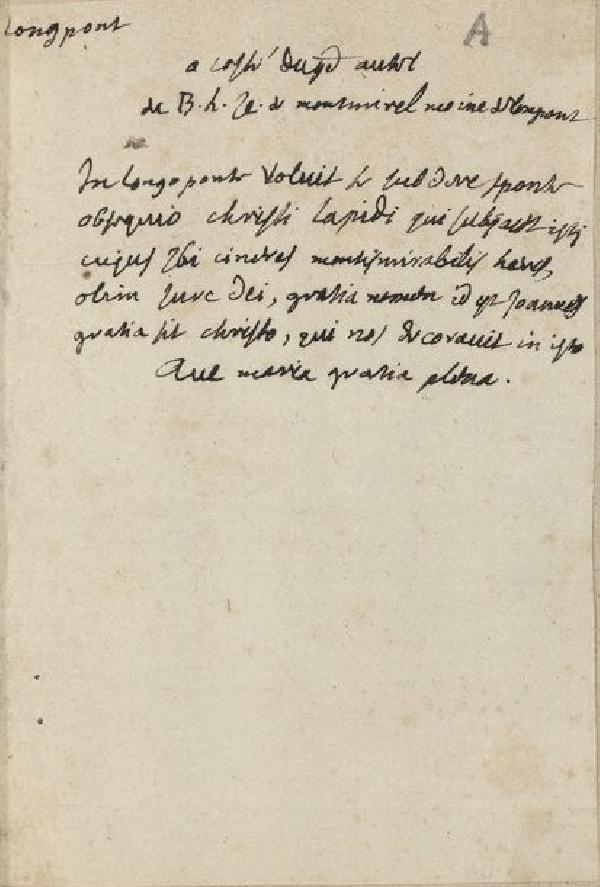 Longpont
A
a costé dugd autel
de B. h. Je. de montmirel moine de longpont
In longo ponte Voluit se subdere sponte
obsequio christi lapidi qui subjacet isti
cujus ibi cineres montismirabilis heres,
olim jure dei, gratia nomen id est Joannes
gratia sit christo, qui nos decoravit in isto
Ave maria gratia plena.